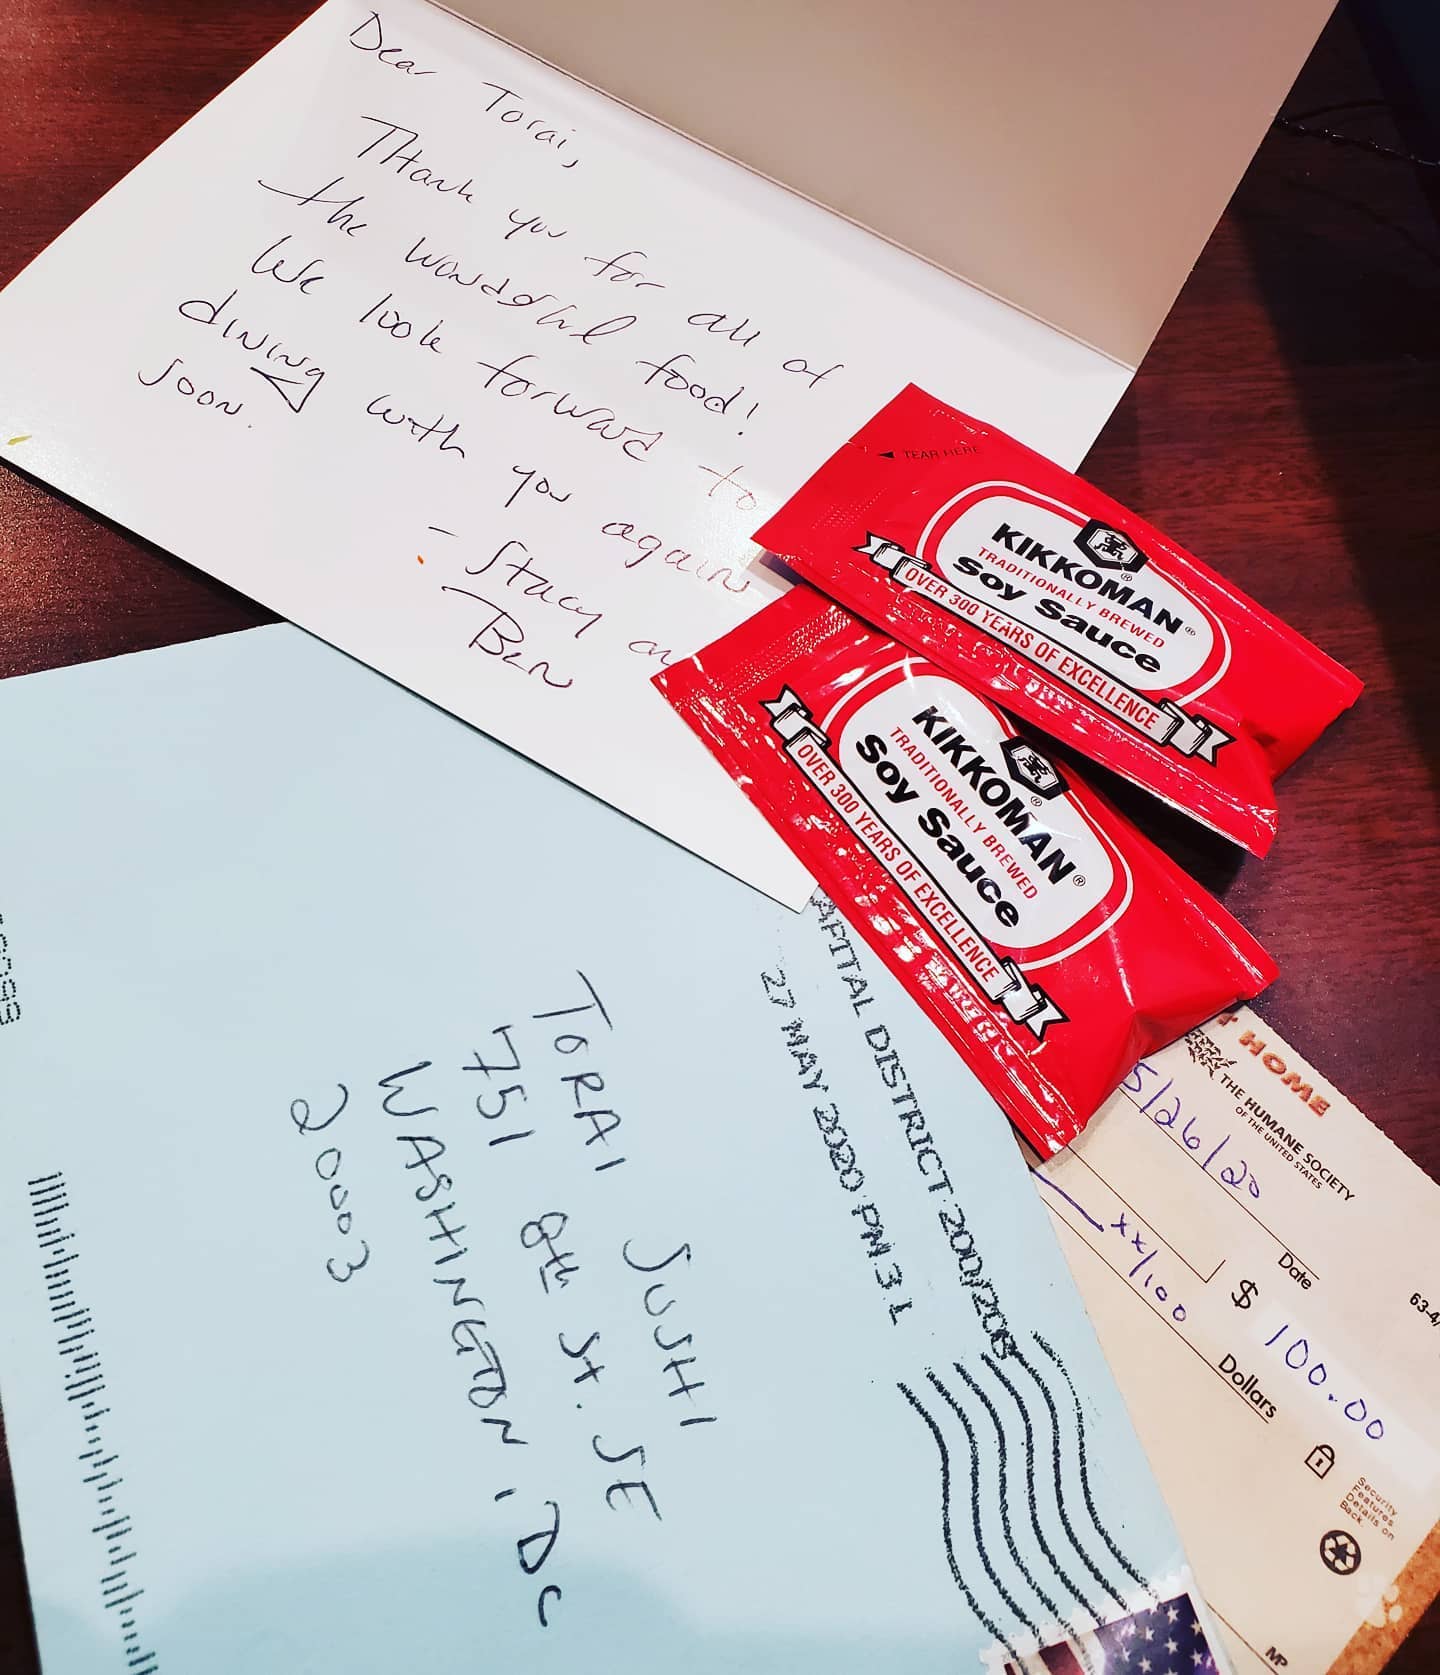 Dear Torai,
Thank you for all of
the wonderful food!
We look forward to
dining with you again
soon.
- Stacy an
Ben
TEAR HERE
KIKKOMAN®
TRADITIONALLY BREWED
Soy Sauce
OVER 300 YEARS OF EXCELLENCE
KIKKOMAN®
TRADITIONALLY BREWED
Soy Sauce
OVER 300 YEARS OF EXCELLENCE
APITAL DISTRICT 200/206
27 MAY 2020 PM 3 L
TORAI SUSHI
751 8th St. SE
WASHINGTON, DC
20003
HOME
THE HUMANE SOCIETY
OF THE UNITED STATES
5/26/20
Date
63-4/
$ 100.00
xx/100
Dollars
Security
Features
Details on
Back.
MP